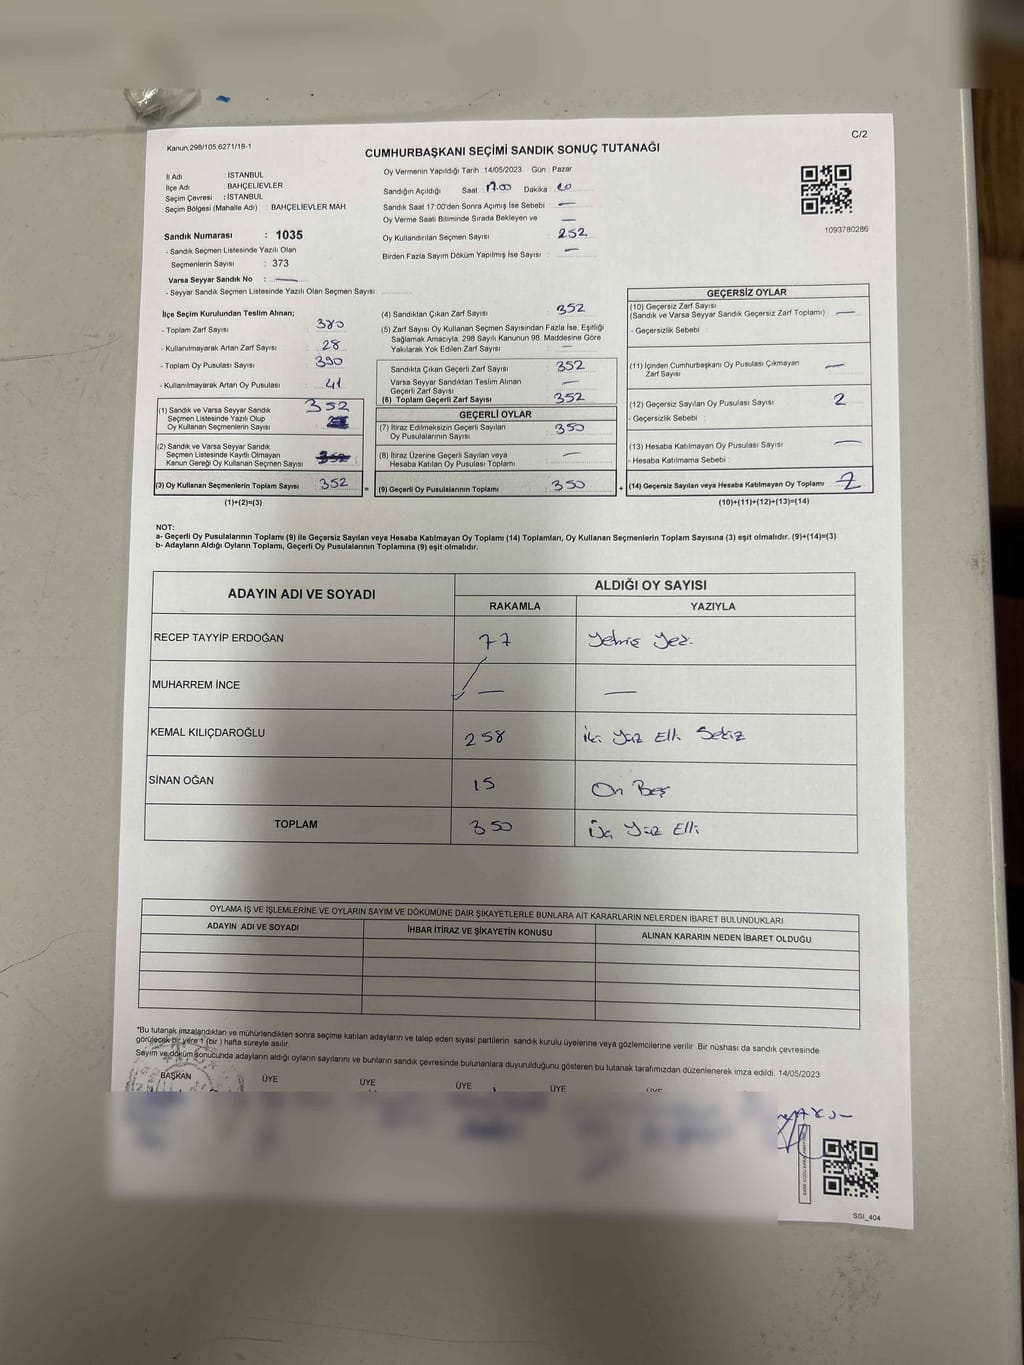 Kanun,298/105,6271/18-1
C/2
CUMHURBAŞKANI SEÇİMİ SANDIK SONUÇ TUTANAĞI
İl Adı : İSTANBUL
İlçe Adı : BAHÇELİEVLER
Seçim Çevresi : İSTANBUL
Seçim Bölgesi (Mahalle Adı) : BAHÇELİEVLER MAH.
Sandık Numarası : 1035
- Sandık Seçmen Listesinde Yazılı Olan
Seçmenlerin Sayısı : 373
Varsa Seyyar Sandık No : —
- Seyyar Sandık Seçmen Listesinde Yazılı Olan Seçmen Sayısı:
Oy Vermenin Yapıldığı Tarih : 14/05/2023 Gün : Pazar
Sandığın Açıldığı Saat : 17.00 Dakika :
Sandık Saat 17:00'den Sonra Açımış İse Sebebi : —
Oy Verme Saati Bitiminde Sırada Bekleyen ve —
Oy Kullandırılan Seçmen Sayısı : 252
Birden Fazla Sayım Döküm Yapılmış İse Sayısı : —
1093780286
İlçe Seçim Kurulundan Teslim Alınan;
- Toplam Zarf Sayısı : 380
- Kullanılmayarak Artan Zarf Sayısı : 28
- Toplam Oy Pusulası Sayısı : 390
- Kullanılmayarak Artan Oy Pusulası : 41
(1) Sandık ve Varsa Seyyar Sandık 352
Seçmen Listesinde Yazılı Olup
Oy Kullanan Seçmenlerin Sayısı :
(2) Sandık ve Varsa Seyyar Sandık
Seçmen Listesinde Kayıtlı Olmayan
Kanun Gereği Oy Kullanan Seçmen Sayısı
(3) Oy Kullanan Seçmenlerin Toplam Sayısı : 352
(1)+(2)=(3)
(4) Sandıktan Çıkan Zarf Sayısı : 352
(5) Zarf Sayısı Oy Kullanan Seçmen Sayısından Fazla İse, Eşitliği
Sağlamak Amacıyla, 298 Sayılı Kanunun 98. Maddesine Göre
Yakılarak Yok Edilen Zarf Sayısı : —
Sandıkta Çıkan Geçerli Zarf Sayısı : 352
Varsa Seyyar Sandıktan Teslim Alınan
Geçerli Zarf Sayısı : —
(6) Toplam Geçerli Zarf Sayısı : 352
GEÇERLİ OYLAR
(7) İtiraz Edilmeksizin Geçerli Sayılan
Oy Pusulalarının Sayısı : 350
(8) İtiraz Üzerine Geçerli Sayılan veya
Hesaba Katılan Oy Pusulası Toplamı : —
= (9) Geçerli Oy Pusulalarının Toplamı : 350
GEÇERSİZ OYLAR
(10) Geçersiz Zarf Sayısı
(Sandık ve Varsa Seyyar Sandık Geçersiz Zarf Toplamı) : —
- Geçersizlik Sebebi :
(11) İçinden Cumhurbaşkanı Oy Pusulası Çıkmayan
Zarf Sayısı : —
(12) Geçersiz Sayılan Oy Pusulası Sayısı : 2
- Geçersizlik Sebebi :
(13) Hesaba Katılmayan Oy Pusulası Sayısı : —
- Hesaba Katılmama Sebebi :
+ (14) Geçersiz Sayılan veya Hesaba Katılmayan Oy Toplamı : 2
(10)+(11)+(12)+(13)=(14)
NOT:
a- Geçerli Oy Pusulalarının Toplamı (9) ile Geçersiz Sayılan veya Hesaba Katılmayan Oy Toplamı (14) Toplamları, Oy Kullanan Seçmenlerin Toplam Sayısına (3) eşit olmalıdır. (9)+(14)=(3)
b- Adayların Aldığı Oyların Toplamı, Geçerli Oy Pusulalarının Toplamına (9) eşit olmalıdır.
ADAYIN ADI VE SOYADI
ALDIĞI OY SAYISI
RAKAMLA YAZIYLA
RECEP TAYYİP ERDOĞAN 77 Yetmiş Yedi
MUHARREM İNCE — —
KEMAL KILIÇDAROĞLU 258 İki Yüz Elli Sekiz
SİNAN OĞAN 15 On Beş
TOPLAM 350 Üç Yüz Elli
OYLAMA İŞ VE İŞLEMLERİNE VE OYLARIN SAYIM VE DÖKÜMÜNE DAİR ŞİKAYETLERLE BUNLARA AİT KARARLARIN NELERDEN İBARET BULUNDUKLARI
ADAYIN ADI VE SOYADI İHBAR İTİRAZ VE ŞİKAYETİN KONUSU ALINAN KARARIN NEDEN İBARET OLDUĞU
*Bu tutanak imzalandıktan ve mühürlendikten sonra seçime katılan adayların ve talep eden siyasi partilerin sandık kurulu üyelerine veya gözlemcilerine verilir. Bir nüshası da sandık çevresinde
görülecek bir yere 1 (bir ) hafta süreyle asılır.
Sayım ve döküm sonucunda adayların aldığı oyların sayılarını ve bunların sandık çevresinde bulunanlara duyurulduğunu gösteren bu tutanak tarafımızdan düzenlenerek imza edildi. 14/05/2023
BAŞKAN ÜYE ÜYE ÜYE ÜYE
SSI_404